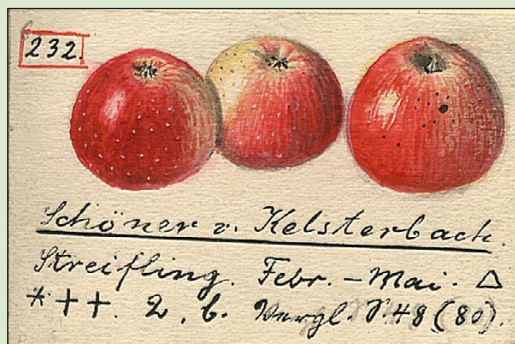 232.
Schöner v. Kelsterbach.
Streifling. Febr. - Mai. △
*++. 2, b. Vergl. S. 48 (80).